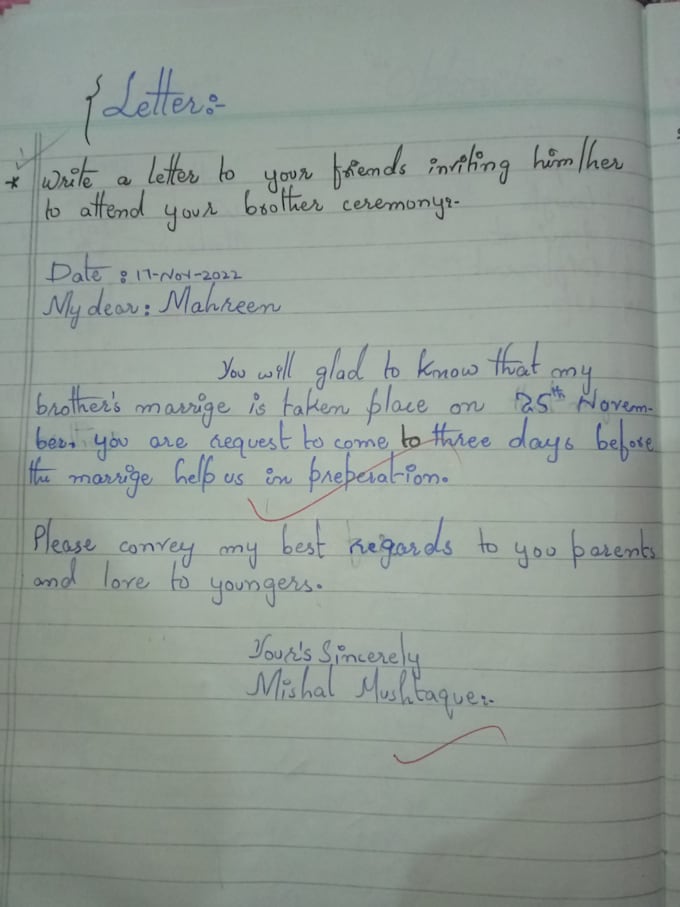 Letter:-
* Write a letter to your friends inviting him/her
to attend your brother ceremony:-
Date : 17-Nov-2022
My dear: Mahreen
You will glad to know that my
brother's marrige is taken place on 25th Novem-
ber. you are request to come to three days before
the marrige help us in preperation.
Please convey my best regards to you parents
and love to youngers.
Your's Sincerely
Mishal Mushtaque:-